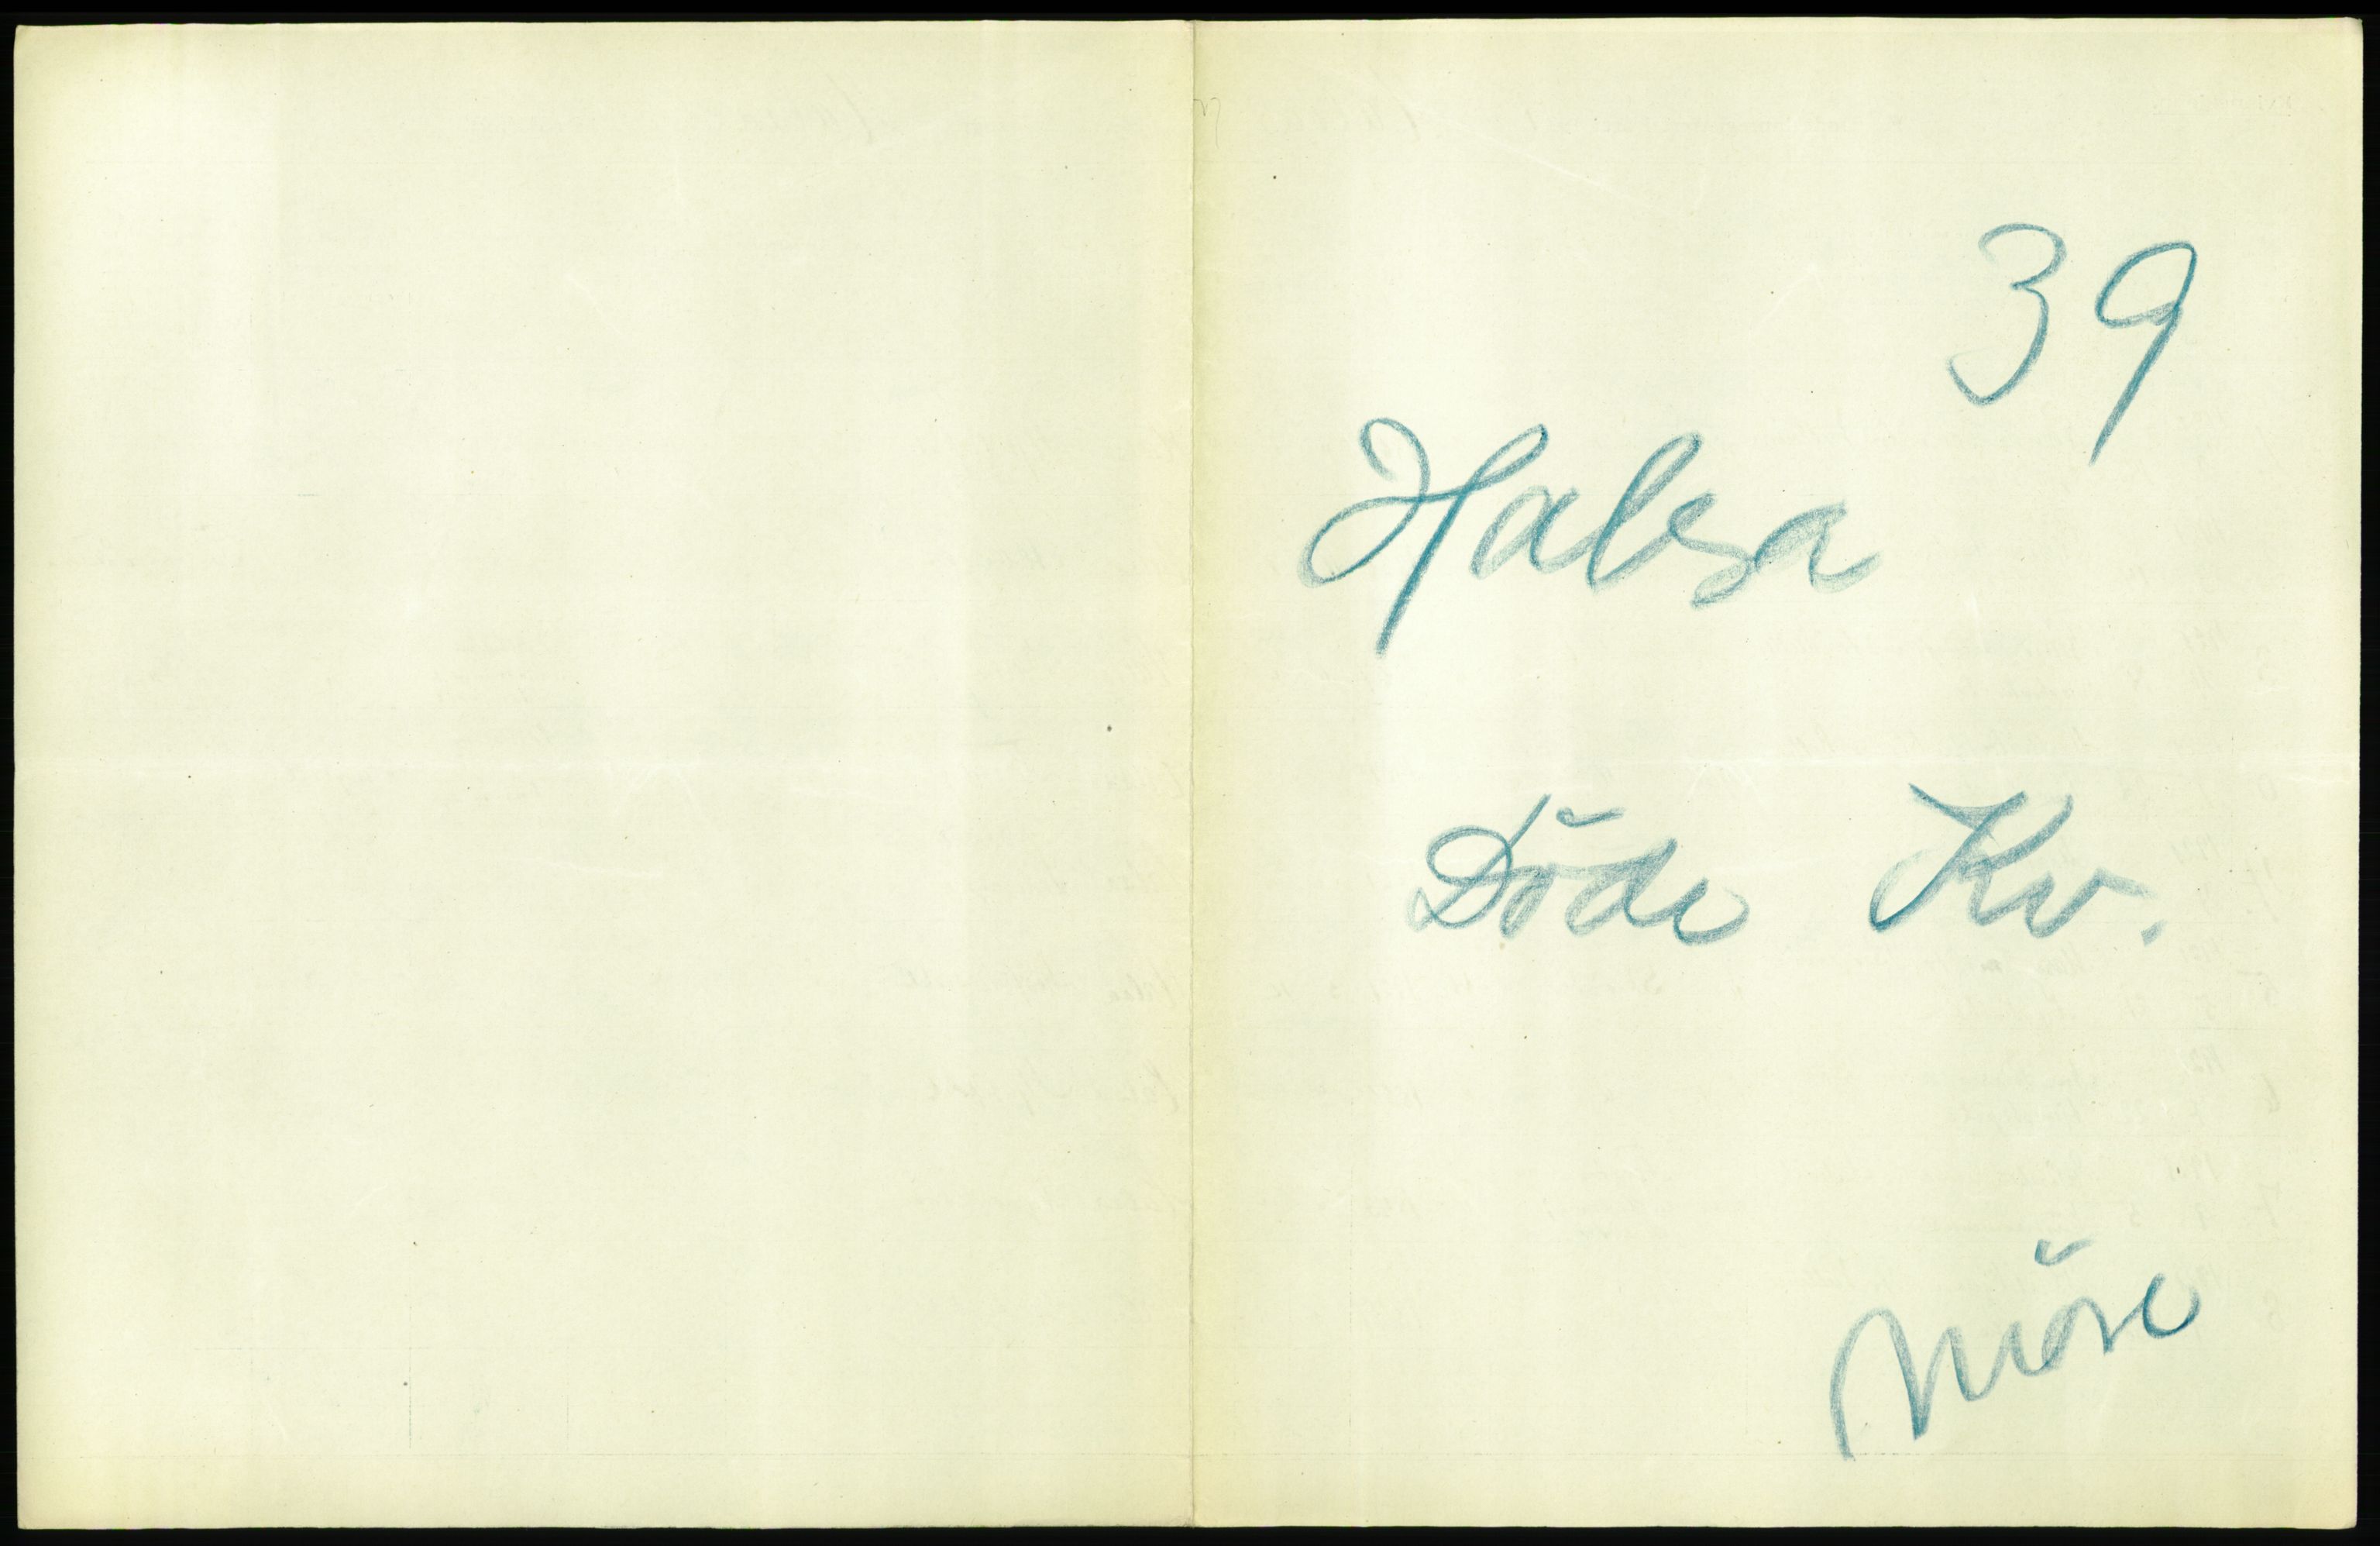 39
Halsa
Döde Kv.
Möre